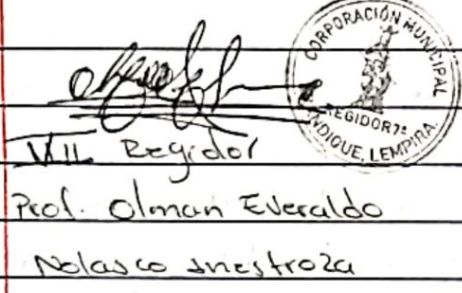 CORPORACIÓN MUNICIPAL
REGIDOR 7º
INDIQUE, LEMPIRA.
VII Regidor
Prof. Olman Everaldo
Nolasco Inestroza